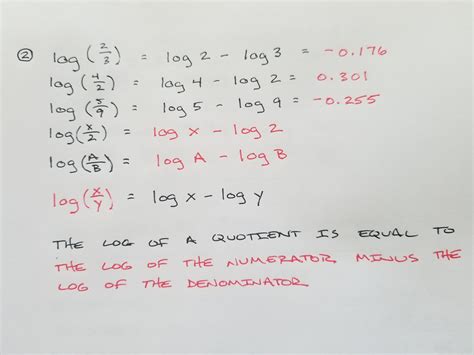 ② log (2/3) = log 2 - log 3 = -0.176
log (4/2) = log 4 - log 2 = 0.301
log (5/9) = log 5 - log 9 = -0.255
log (x/2) = log x - log 2
log (A/B) = log A - log B
log (x/y) = log x - log y
THE LOG OF A QUOTIENT IS EQUAL TO
THE LOG OF THE NUMERATOR MINUS THE
LOG OF THE DENOMINATOR